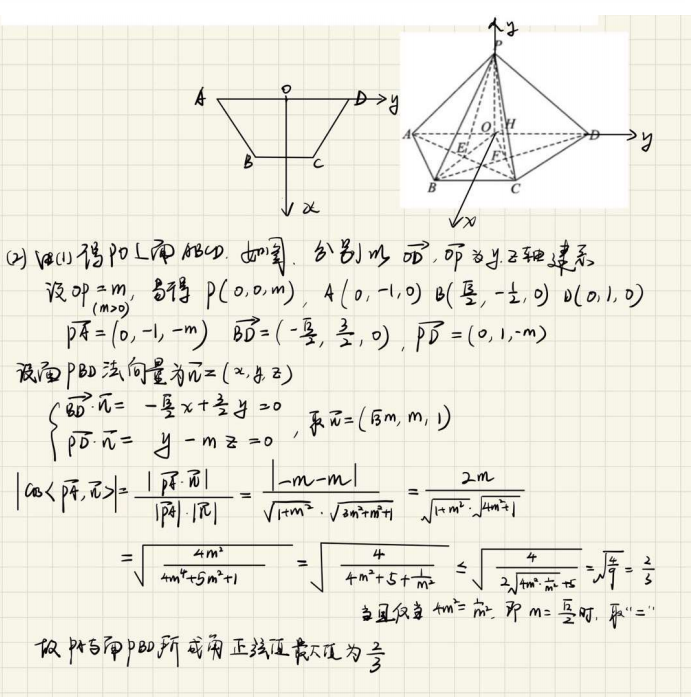 A O D y
B C
x
y
P
A O H D y
E F
B C
x
(2) 由(1)得PO⊥面ABCD. 如图, 分别以 $\overrightarrow{OD}$, $\overrightarrow{OP}$ 为y, z轴建系
设OP=m, 易得 P(0,0,m), A(0,-1,0) B($\frac{\sqrt{3}}{2}$, $-\frac{1}{2}$, 0) D(0,1,0)
(m>0)
$\overrightarrow{PA}$=(0,-1,-m) $\overrightarrow{BD}$=($-\frac{\sqrt{3}}{2}$, $\frac{3}{2}$, 0), $\overrightarrow{PD}$=(0,1,-m)
设面PBD法向量为$\vec{n}$=(x,y,z)
$\begin{cases}\overrightarrow{BD}\cdot\vec{n}=-\frac{\sqrt{3}}{2}x+\frac{3}{2}y=0\\ \overrightarrow{PD}\cdot\vec{n}=y-mz=0\end{cases}$, 取$\vec{n}$=($\sqrt{3}$m, m, 1)
$|\cos<\overrightarrow{PA},\vec{n}>|=\frac{|\overrightarrow{PA}\cdot\vec{n}|}{|\overrightarrow{PA}|\cdot|\vec{n}|}=\frac{|-m-m|}{\sqrt{1+m^2}\cdot\sqrt{3m^2+m^2+1}}=\frac{2m}{\sqrt{1+m^2}\cdot\sqrt{4m^2+1}}$
$=\sqrt{\frac{4m^2}{4m^4+5m^2+1}}=\sqrt{\frac{4}{4m^2+5+\frac{1}{m^2}}}\le\sqrt{\frac{4}{2\sqrt{4m^2\cdot\frac{1}{m^2}}+5}}=\sqrt{\frac{4}{9}}=\frac{2}{3}$
当且仅当 $4m^2=\frac{1}{m^2}$, 即 m=$\frac{\sqrt{2}}{2}$时, 取"="
故PA与面PBD所成角正弦值最大值为$\frac{2}{3}$